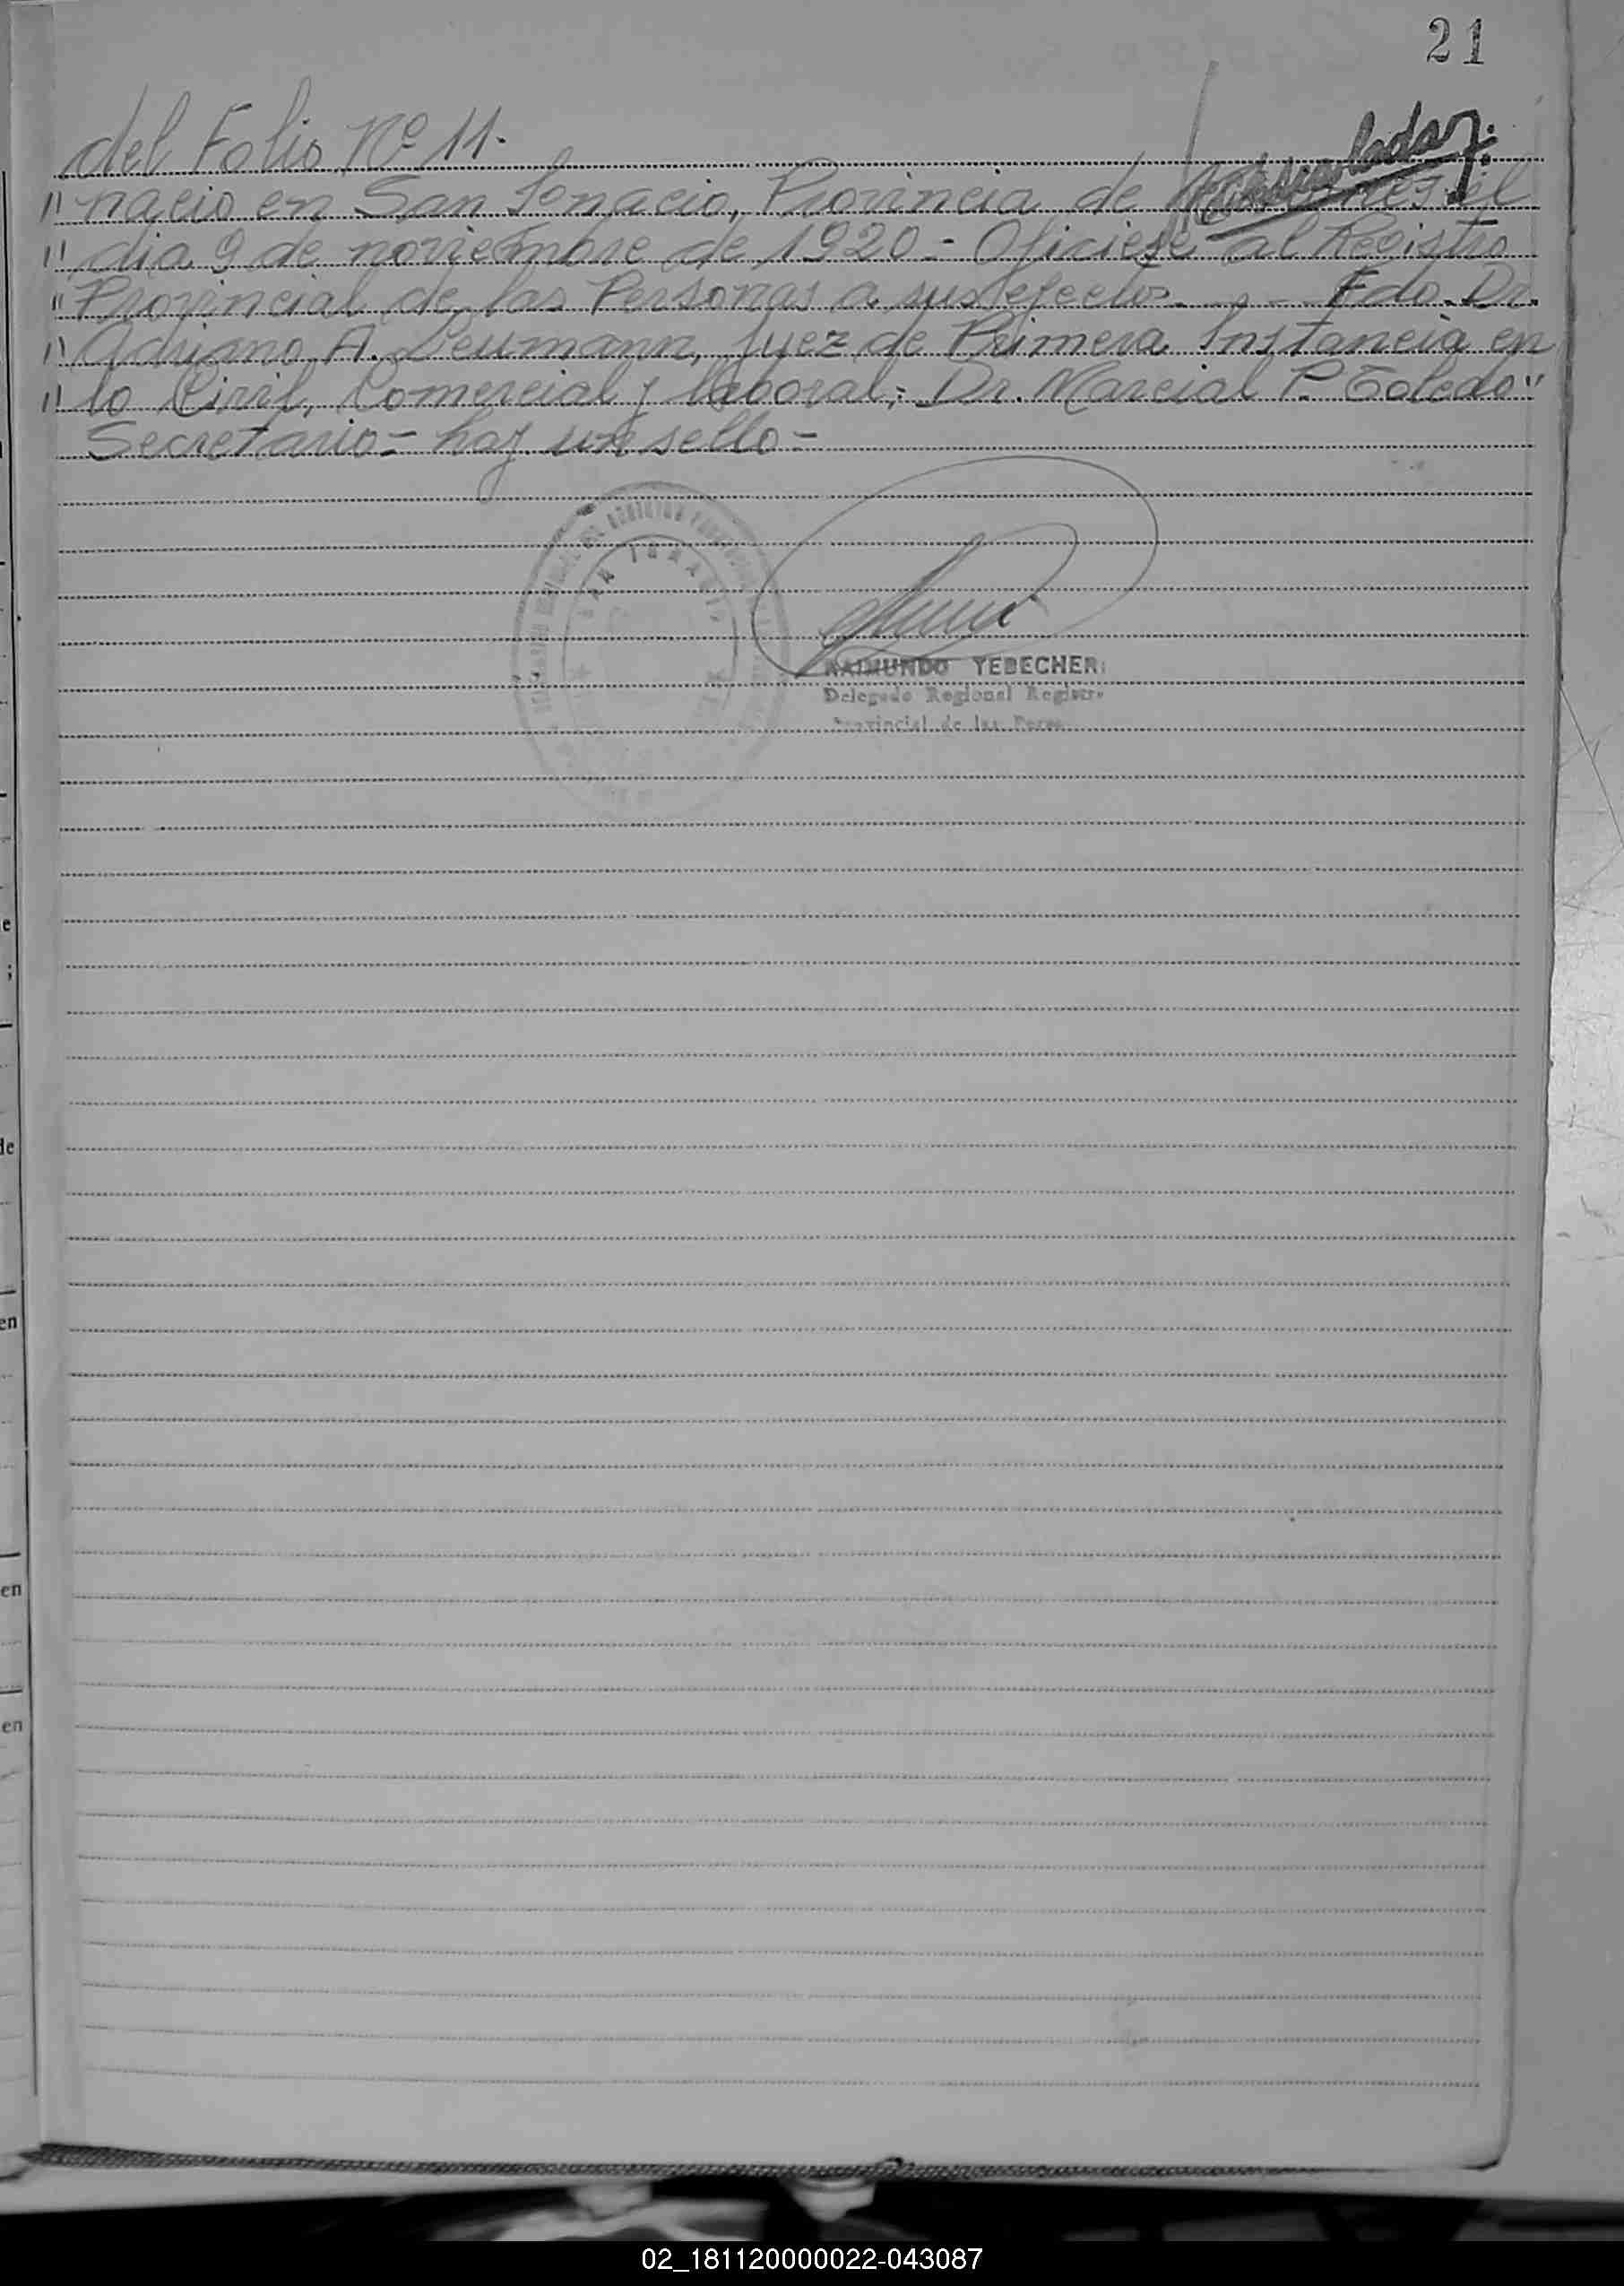 21
del Folio Nº 11.
" nacio en San Ignacio, Provincia de el
" dia 9 de noviembre de 1920 - Oficiese al Registro
" Provincial de las Personas a sus efectos. - Fdo. Dr.
" Adriano A. Leumann, Juez de Primera Instancia en
" lo Civil, Comercial y laboral; Dr. Marcial P. Toledo"
Secretario = hay un sello =
SAN IGNACIO
RAIMUNDO YEBECHER
Delegado Regional Registro
Provincial de las Perso
e
;
de
en
en
en
02_181120000022-043087